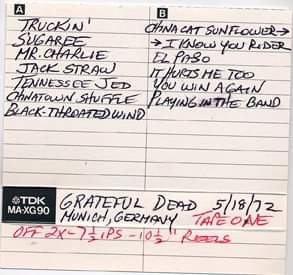 A
TRUCKIN'
SUGAREE
MR. CHARLIE
JACK STRAW
TENNESSEE JED
CHINATOWN SHUFFLE
BLACK-THROATED WIND
B
CHINA CAT SUNFLOWER →
→ I KNOW YOU RIDER
EL PASO
IT HURTS ME TOO
YOU WIN AGAIN
PLAYING IN THE BAND
TDK
MA-XG90
GRATEFUL DEAD 5/18/72
MUNICH, GERMANY TAPE ONE
OFF 2X-7½ IPS - 10½" REELS